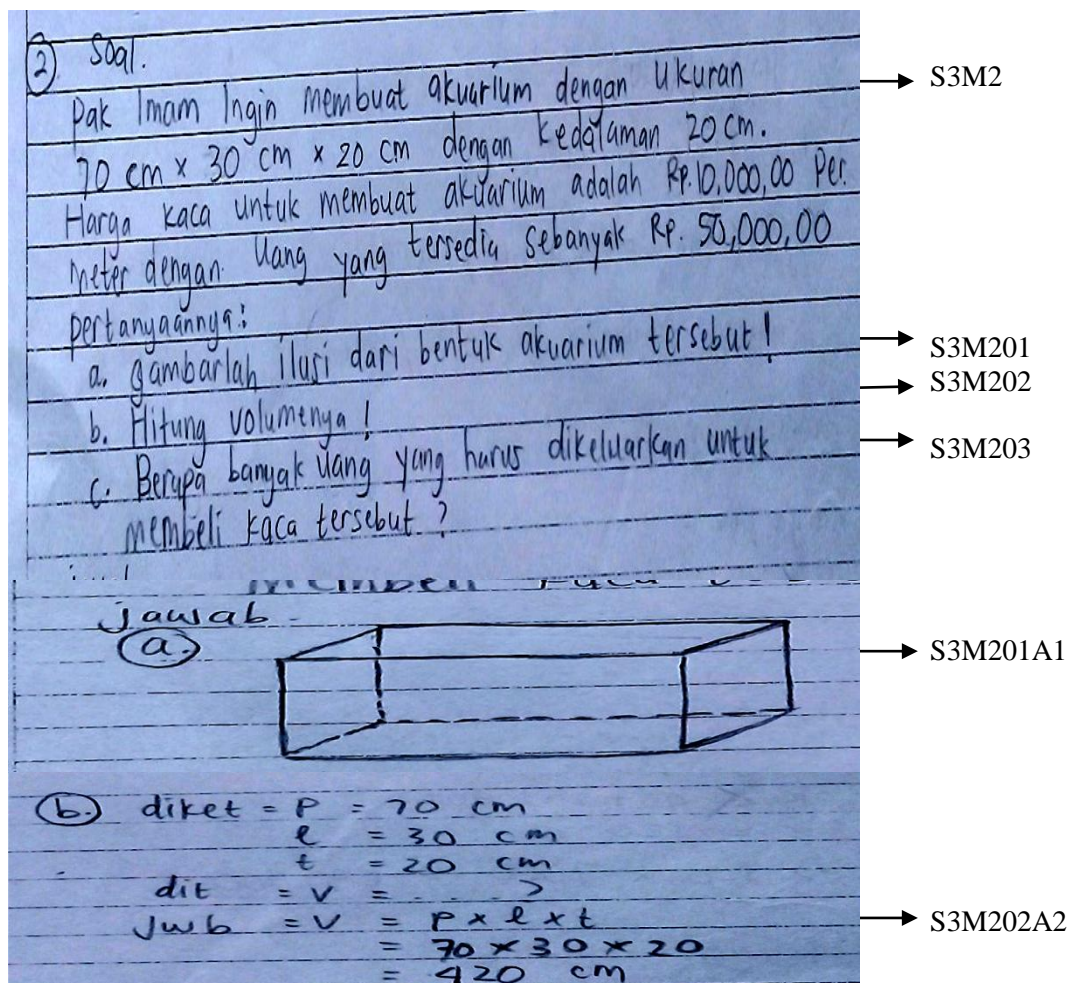 2) Soal.
Pak Imam Ingin membuat akuarium dengan ukuran
S3M2
70 cm x 30 cm x 20 cm dengan kedalaman 20 cm.
Harga kaca untuk membuat akuarium adalah Rp.10,000,00 Per.
meter dengan. Uang yang tersedia sebanyak Rp. 50,000,00
pertanyaannya:
a. gambarlah ilusi dari bentuk akuarium tersebut!
S3M201
b. Hitung volumenya!
S3M202
c. Berapa banyak uang yang harus dikeluarkan untuk
S3M203
membeli kaca tersebut.?
jawab
a.
S3M201A1
b. diket = P = 70 cm
l = 30 cm
t = 20 cm
dit = v = ..... ?
Jwb = v = P x l x t
S3M202A2
= 70 x 30 x 20
= 420 cm